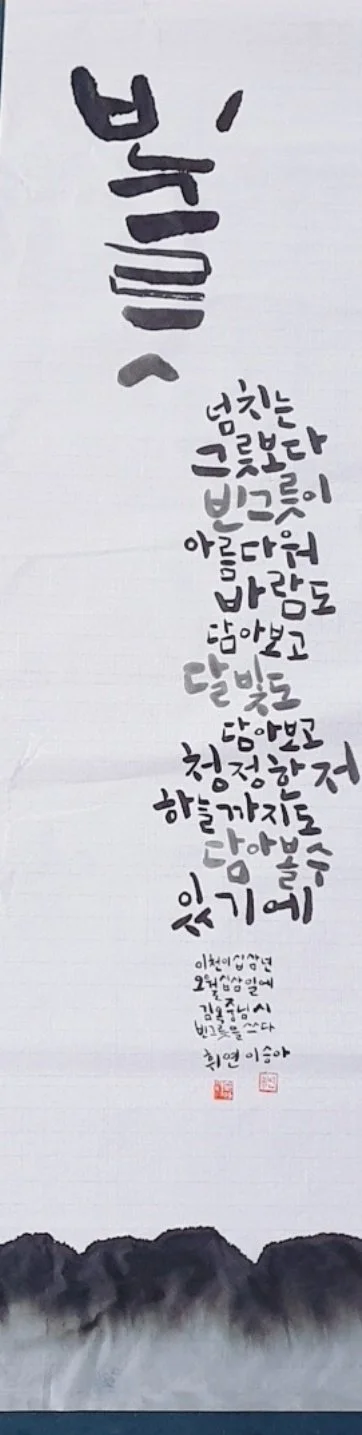 넘치는
그릇보다
빈그릇이
아름다워
바람도
담아보고
달빛도
담아보고
청정한 저
하늘까지도
담아볼수
있기에
이천이십삼년
오월십삼일에
김옥중님 시
빈그릇을 쓰다
휘연 이승아